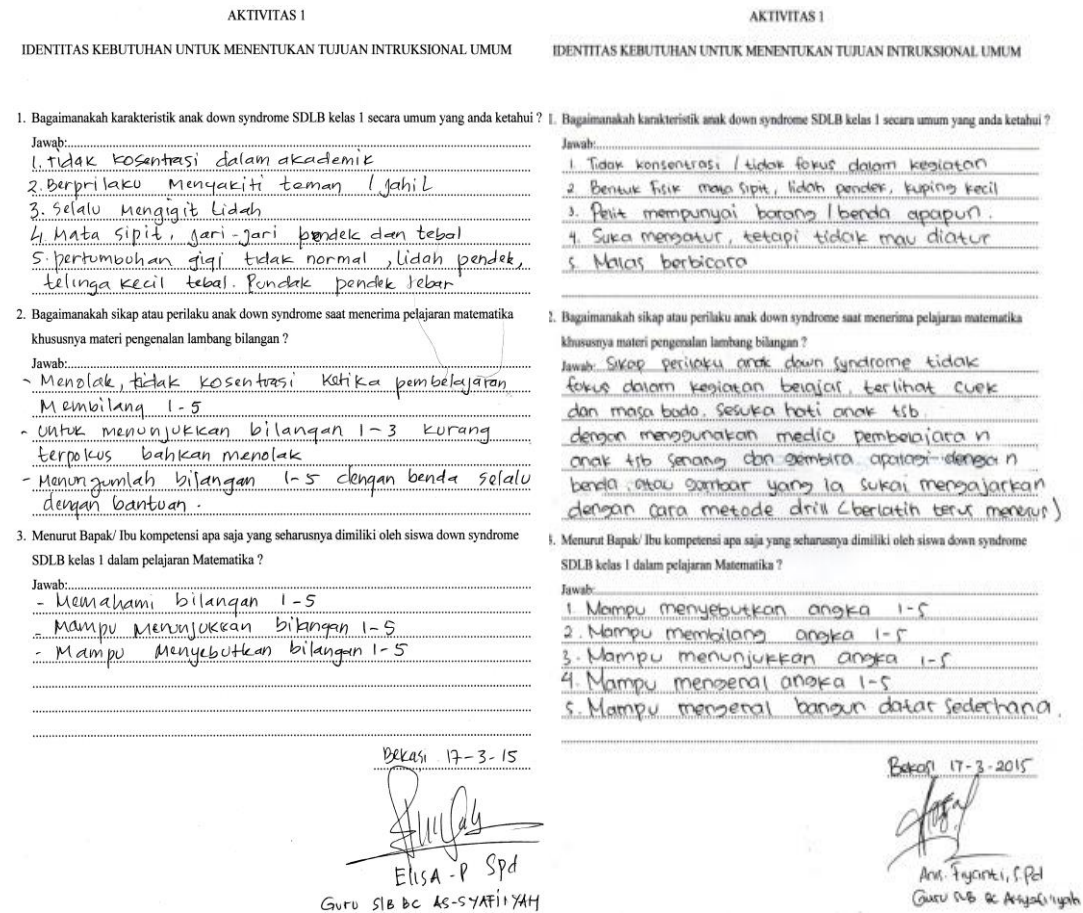 AKTIVITAS 1
IDENTITAS KEBUTUHAN UNTUK MENENTUKAN TUJUAN INTRUKSIONAL UMUM
1. Bagaimanakah karakteristik anak down syndrome SDLB kelas 1 secara umum yang anda ketahui ?
Jawab:
1. tidak kosentrasi dalam akademik
2. Berprilaku Menyakiti teman / Jahil
3. Selalu Mengigit Lidah
4. Mata sipit, jari-jari pendek dan tebal
5. pertumbuhan gigi tidak normal, lidah pendek,
telinga kecil tebal. Pundak pendek lebar
2. Bagaimanakah sikap atau perilaku anak down syndrome saat menerima pelajaran matematika
khususnya materi pengenalan lambang bilangan ?
Jawab:
- Menolak, tidak kosentrasi ketika pembelajaran
Membilang 1-5
- untuk menunjukkan bilangan 1-3 kurang
terpokus bahkan menolak
- Menunjumlah bilangan 1-5 dengan benda selalu
dengan bantuan.
3. Menurut Bapak/ Ibu kompetensi apa saja yang seharusnya dimiliki oleh siswa down syndrome
SDLB kelas 1 dalam pelajaran Matematika ?
Jawab:
- Memahami bilangan 1-5
- Mampu Menunjukkan bilangan 1-5
- Mampu Menyebutkan bilangan 1-5
Bekasi 17-3-15
ElisA-P Spd
Guru SlB BC AS-SYAFIIYAH
AKTIVITAS 1
IDENTITAS KEBUTUHAN UNTUK MENENTUKAN TUJUAN INTRUKSIONAL UMUM
1. Bagaimanakah karakteristik anak down syndrome SDLB kelas 1 secara umum yang anda ketahui ?
Jawab:
1. Tidak konsentrasi / tidak fokus dalam kegiatan
2. Bentuk fisik mata sipit, lidah pendek, kuping kecil
3. Pelit mempunyai barang / benda apapun.
4. Suka mengatur, tetapi tidak mau diatur
5. Malas berbicara
2. Bagaimanakah sikap atau perilaku anak down syndrome saat menerima pelajaran matematika
khususnya materi pengenalan lambang bilangan ?
Jawab: Sikap perilaku anak down syndrome tidak
fokus dalam kegiatan belajar, terlihat cuek
dan masa bodo, sesuka hati anak tsb.
dengan menggunakan media pembelajaran
anak tsb senang dan gembira apalagi dengan
benda atau gambar yang ia sukai mengajarkan
dengan cara metode drill (berlatih terus menerus)
3. Menurut Bapak/ Ibu kompetensi apa saja yang seharusnya dimiliki oleh siswa down syndrome
SDLB kelas 1 dalam pelajaran Matematika ?
Jawab:
1. Mampu menyebutkan angka 1-5
2. Mampu membilang angka 1-5
3. Mampu menunjukkan angka 1-5
4. Mampu mengenal angka 1-5
5. Mampu mengenal bangun datar sederhana.
Bekasi 17-3-2015
Fiyanti, S.Pd
Guru SLB BC Assyafi'iyah